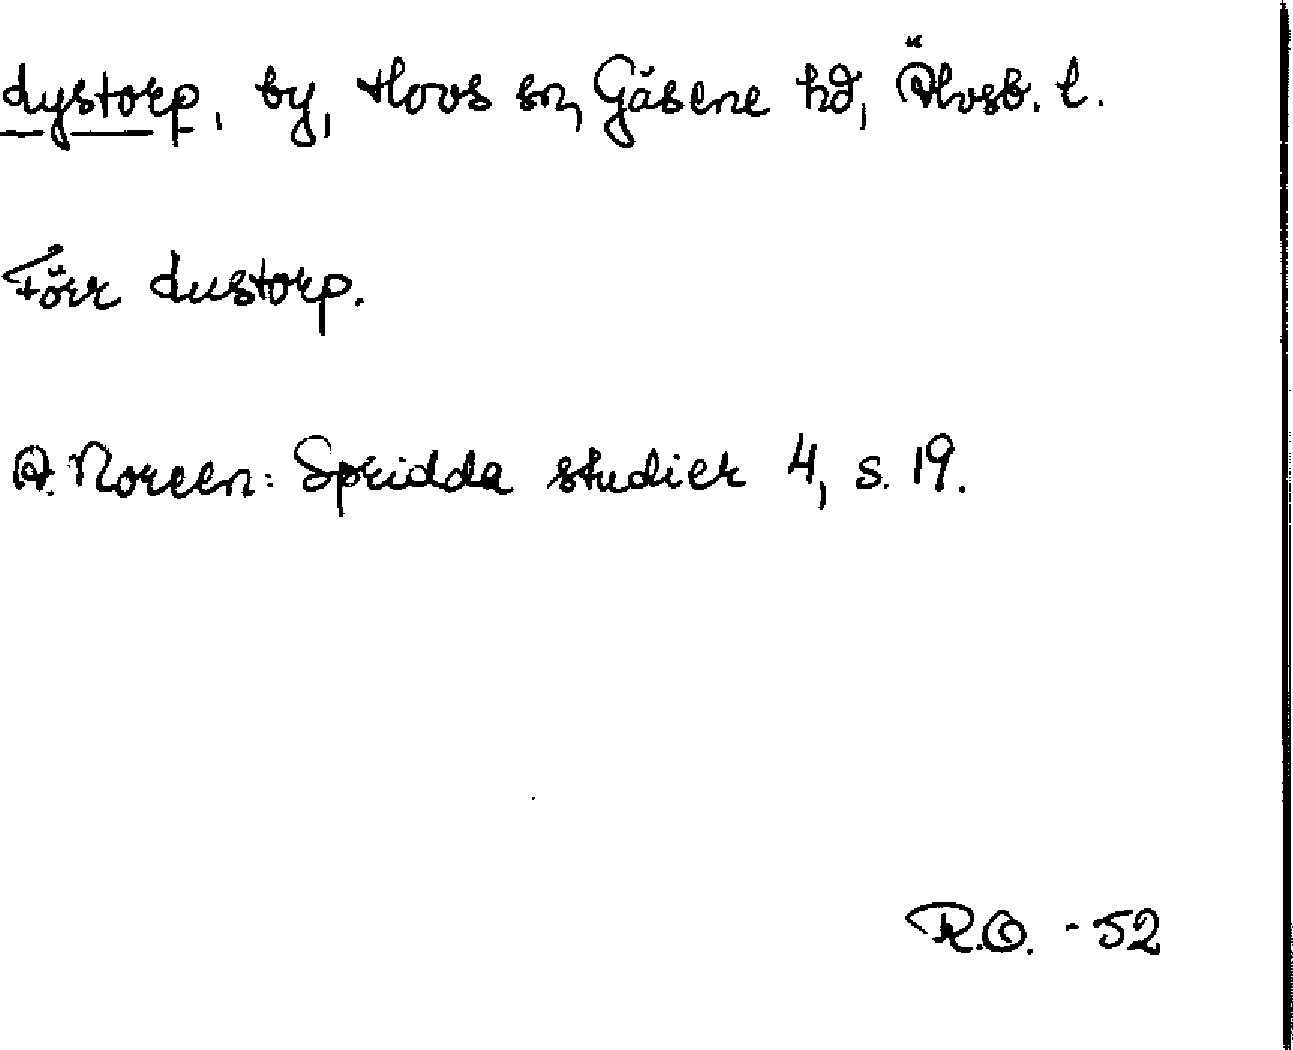 dystorp, by, Hovs sn, Gäsene hd, Älvsb. l.
Förr dustorp.
A. Noreen: Spridda studier 4, s. 19.
R.O. -52